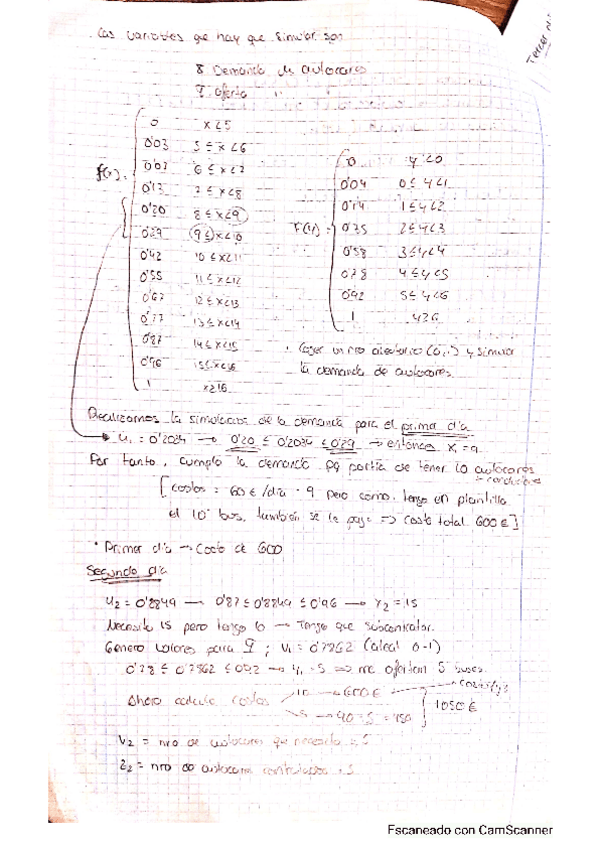 Las variables que hay que simular son
8 Demanda de autocares
9 oferta " "
f(x) =
0 x<5
0'03 5 ≤ x<6
0'07 6 ≤ x<7
0'13 7 ≤ x<8
0'20 8 ≤ x<9
0'29 9 ≤ x<10
0'42 10 ≤ x<11
0'55 11 ≤ x<12
0'67 12 ≤ x<13
0'77 13 ≤ x<14
0'87 14 ≤ x<15
0'96 15 ≤ x<16
1 x≥16
F(y) =
0 y<0
0'04 0 ≤ y<1
0'14 1 ≤ y<2
0'35 2 ≤ y<3
0'58 3 ≤ y<4
0'78 4 ≤ y<5
0'92 5 ≤ y<6
1 y≥6
. Coger un nro aleatorio (0,1) y simular
la demanda de autocares.
Realizamos la simulación de la demanda para el primer día
u₁ = 0'2034 → 0'20 ≤ 0'2034 ≤ 0'29 → entonces x₁ = 9
Por tanto, cumplo la demanda pq partía de tener 10 autocares
[costos = 60 €/día · 9 pero como tengo en plantilla
el 10º bus, también se le paga => Coste total 600 €]
• Primer día → Costo de 600
Segundo día
u₂ = 0'8849 → 0'87 ≤ 0'8849 ≤ 0'96 → x₂ = 15
Necesito 15 pero tengo 10 → Tengo que subcontratar.
Genero valores para 9 ; u₁ = 0'7862 (aleat 0-1)
0'78 ≤ 0'7862 ≤ 0'92 → y₁ = 5 => me ofertan 5 buses.
Ahora calculo costos
10 → 600 €
5 → 90 · 5 = 450
1050 €
V₂ = nro de autocares que necesito = 5
Z₂ = nro de autocares contratados = 5
Escaneado con CamScanner